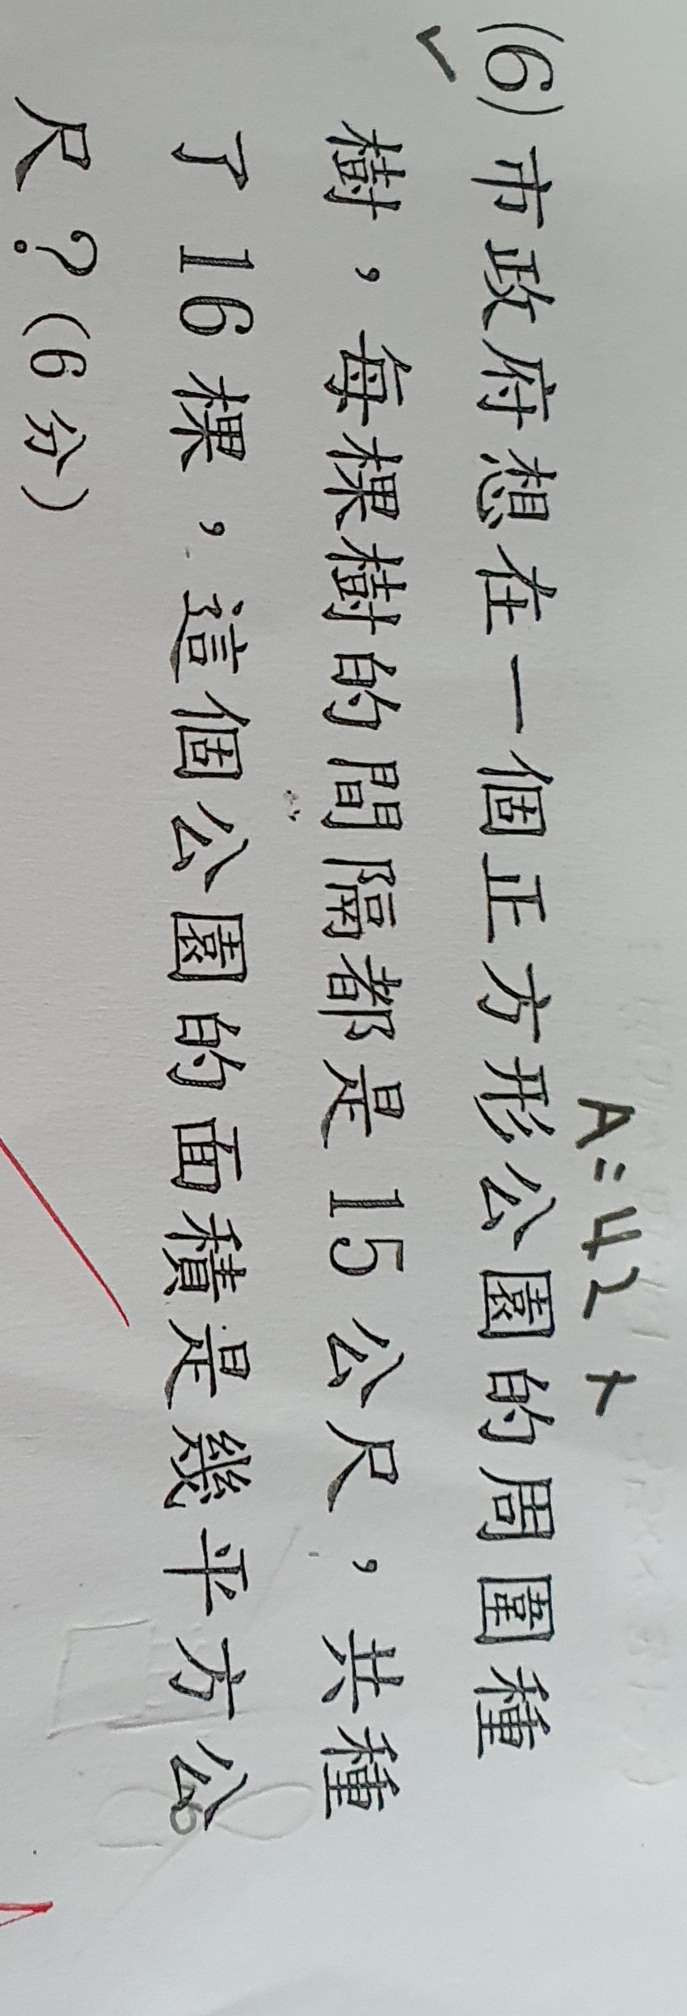 A=42+
(6)市政府想在一個正方形公園的周圍種
樹，每棵樹的間隔都是15公尺，共種
了16棵，這個公園的面積是幾平方公
尺？(6分)